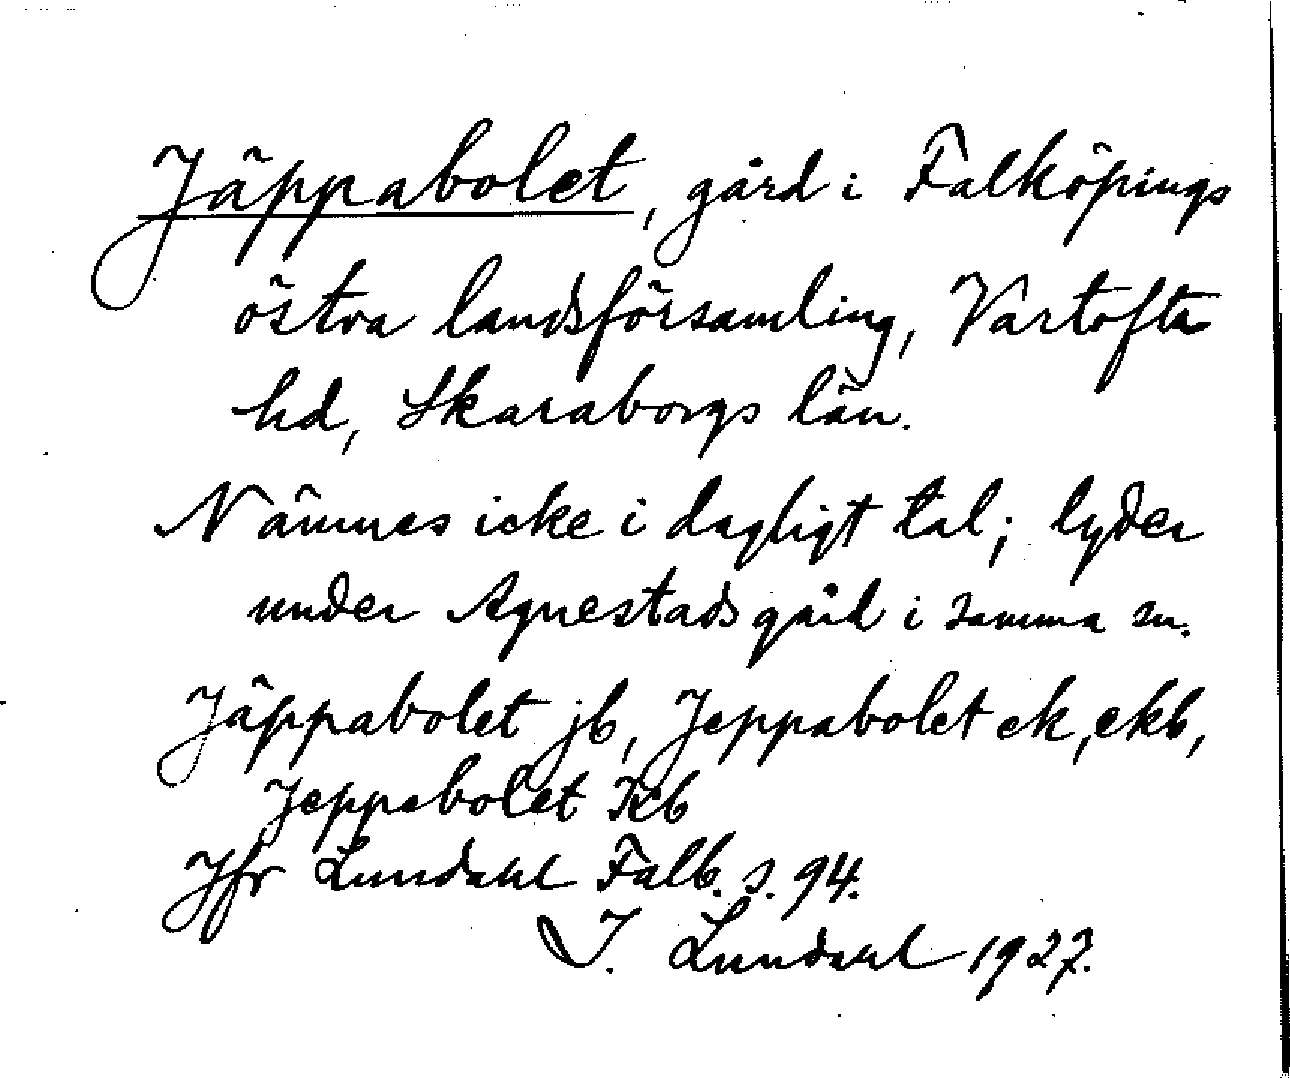 Jäppabolet, gård i Falköpings
östra landsförsamling, Vartofta
hd, Skaraborgs län.
Nämnes icke i dagligt tal; lyder
under Agnestads gård i samma sn.
Jäppabolet jb, Jeppabolet ek, ekb,
Jeppabolet Kb
Jfr Lundahl Falb. s. 94.
I. Lundahl 1927.